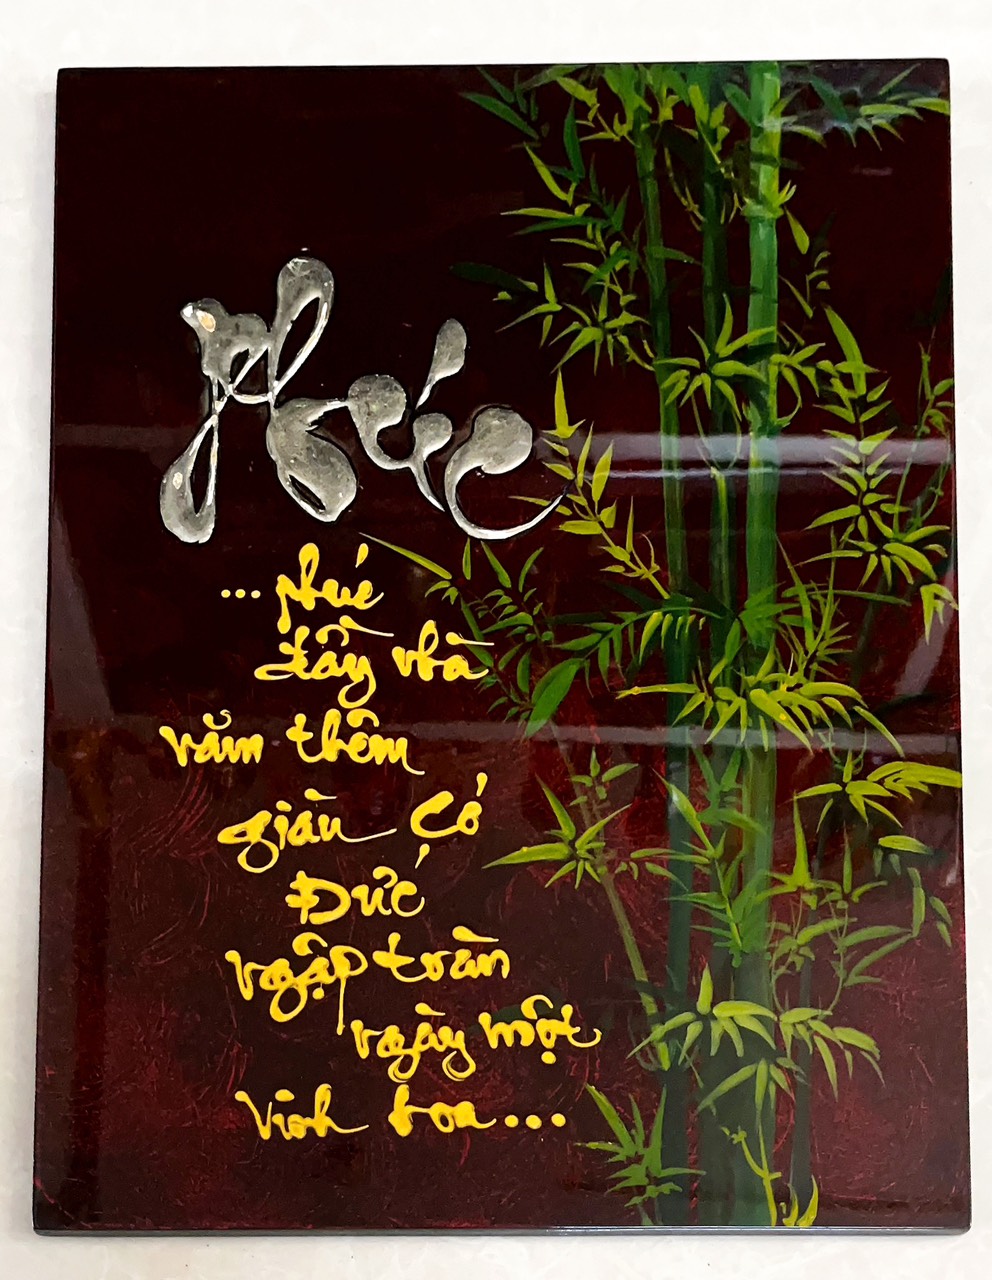 Phúc
...phúc
đầy nhà
năm thêm
giàu Có
Đức
ngập tràn
ngày một
Vinh hoa...